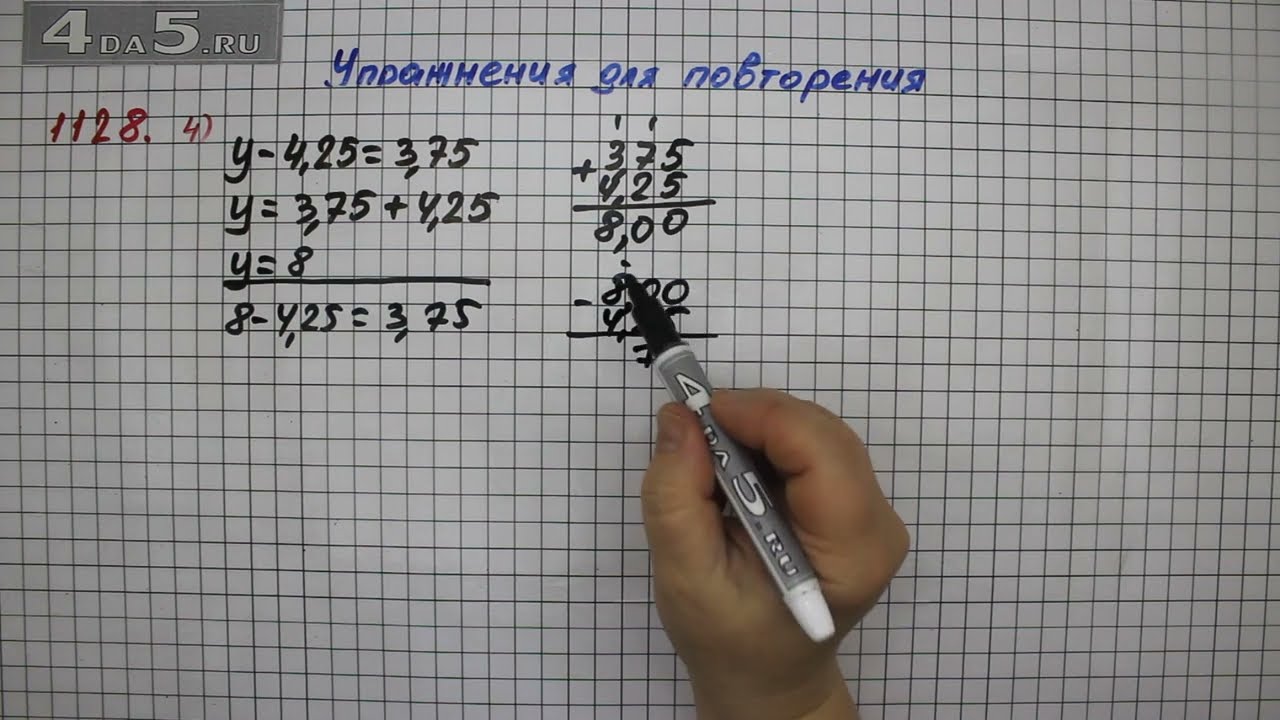 4DA5.RU
Упражнения для повторения
1128. 4)
y - 4,25 = 3,75
y = 3,75 + 4,25
y = 8
8 - 4,25 = 3,75
3 7 5
+ 4,2 5
8,0 0
8,00
- 4,
7
4DA5.RU